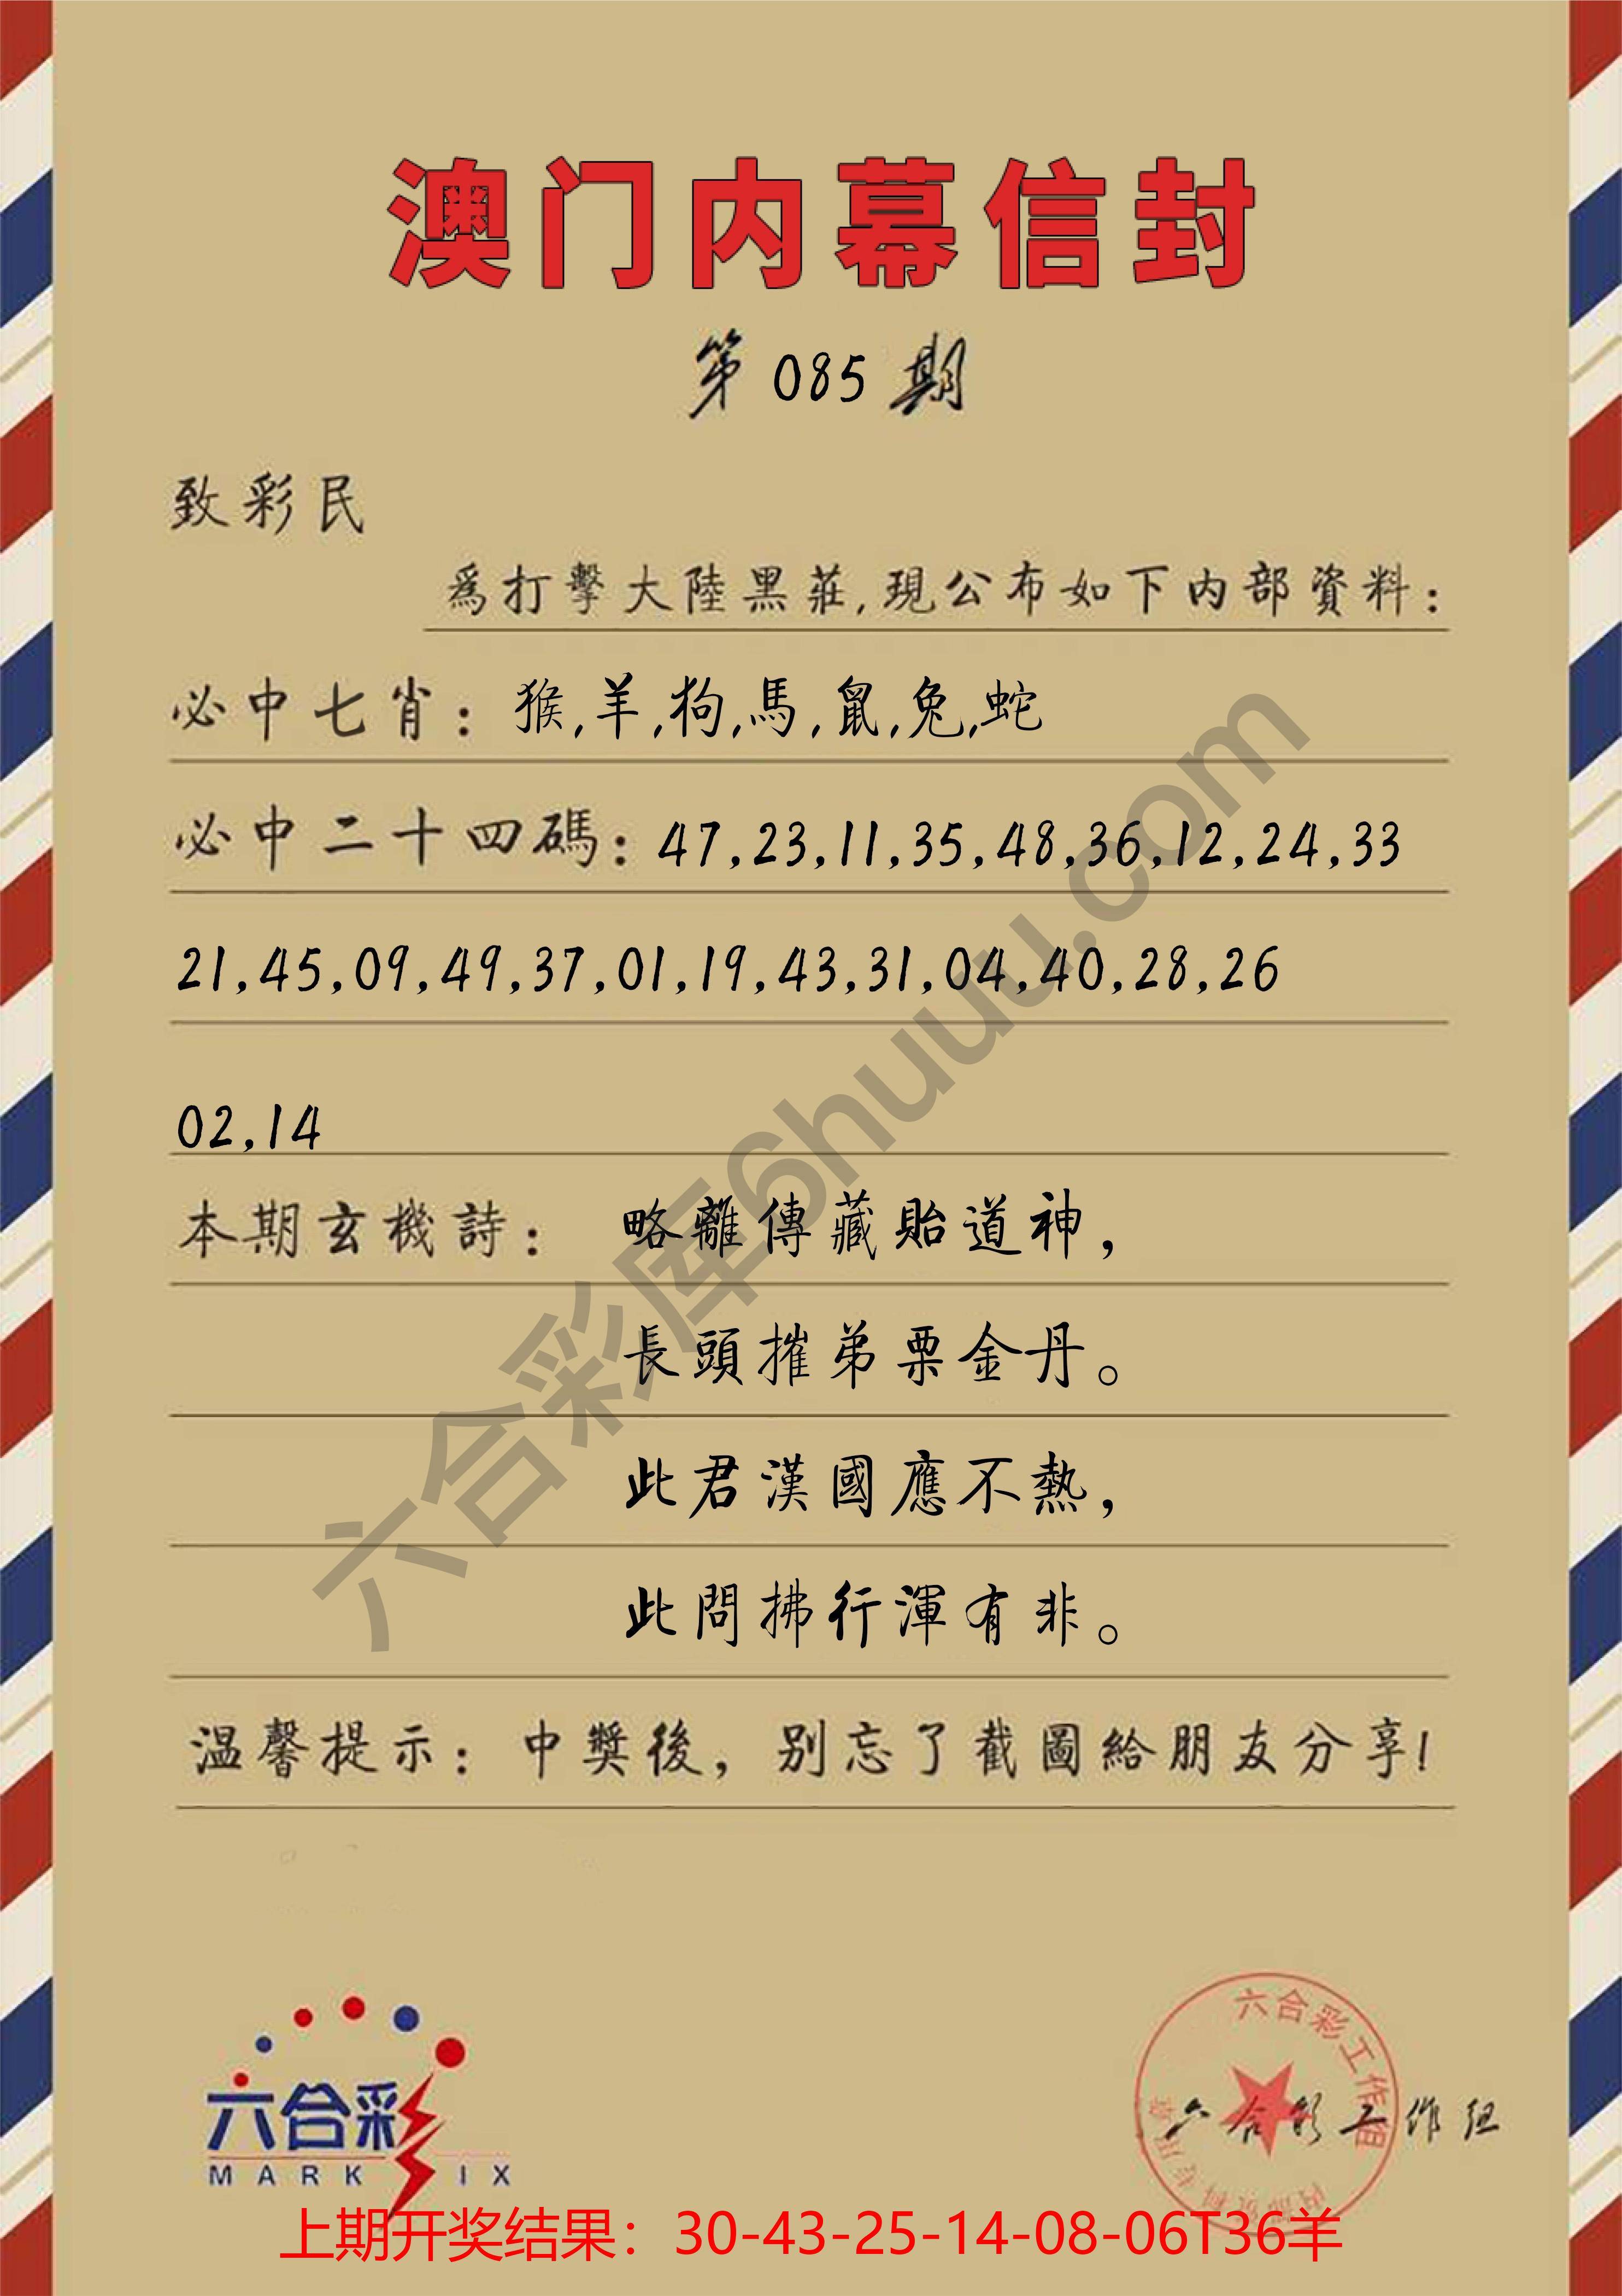 澳门内幕信封
第085期
致彩民
爲打擊大陸黑莊,現公布如下内部資料:
必中七肖:猴,羊,狗,馬,鼠,兔,蛇
必中二十四碼:47,23,11,35,48,36,12,24,33
21,45,09,49,37,01,19,43,31,04,40,28,26
02,14
本期玄機詩: 略離傳藏貽道神,
長頭摧弟栗金丹。
此君漢國應不熱,
此問拂行渾有非。
温馨提示:中獎後,別忘了截圖給朋友分享!
六合彩库6huuu.com
六合彩
MARK IX
六合彩工作组
六合彩工作组
上期开奖结果:30-43-25-14-08-06T36羊